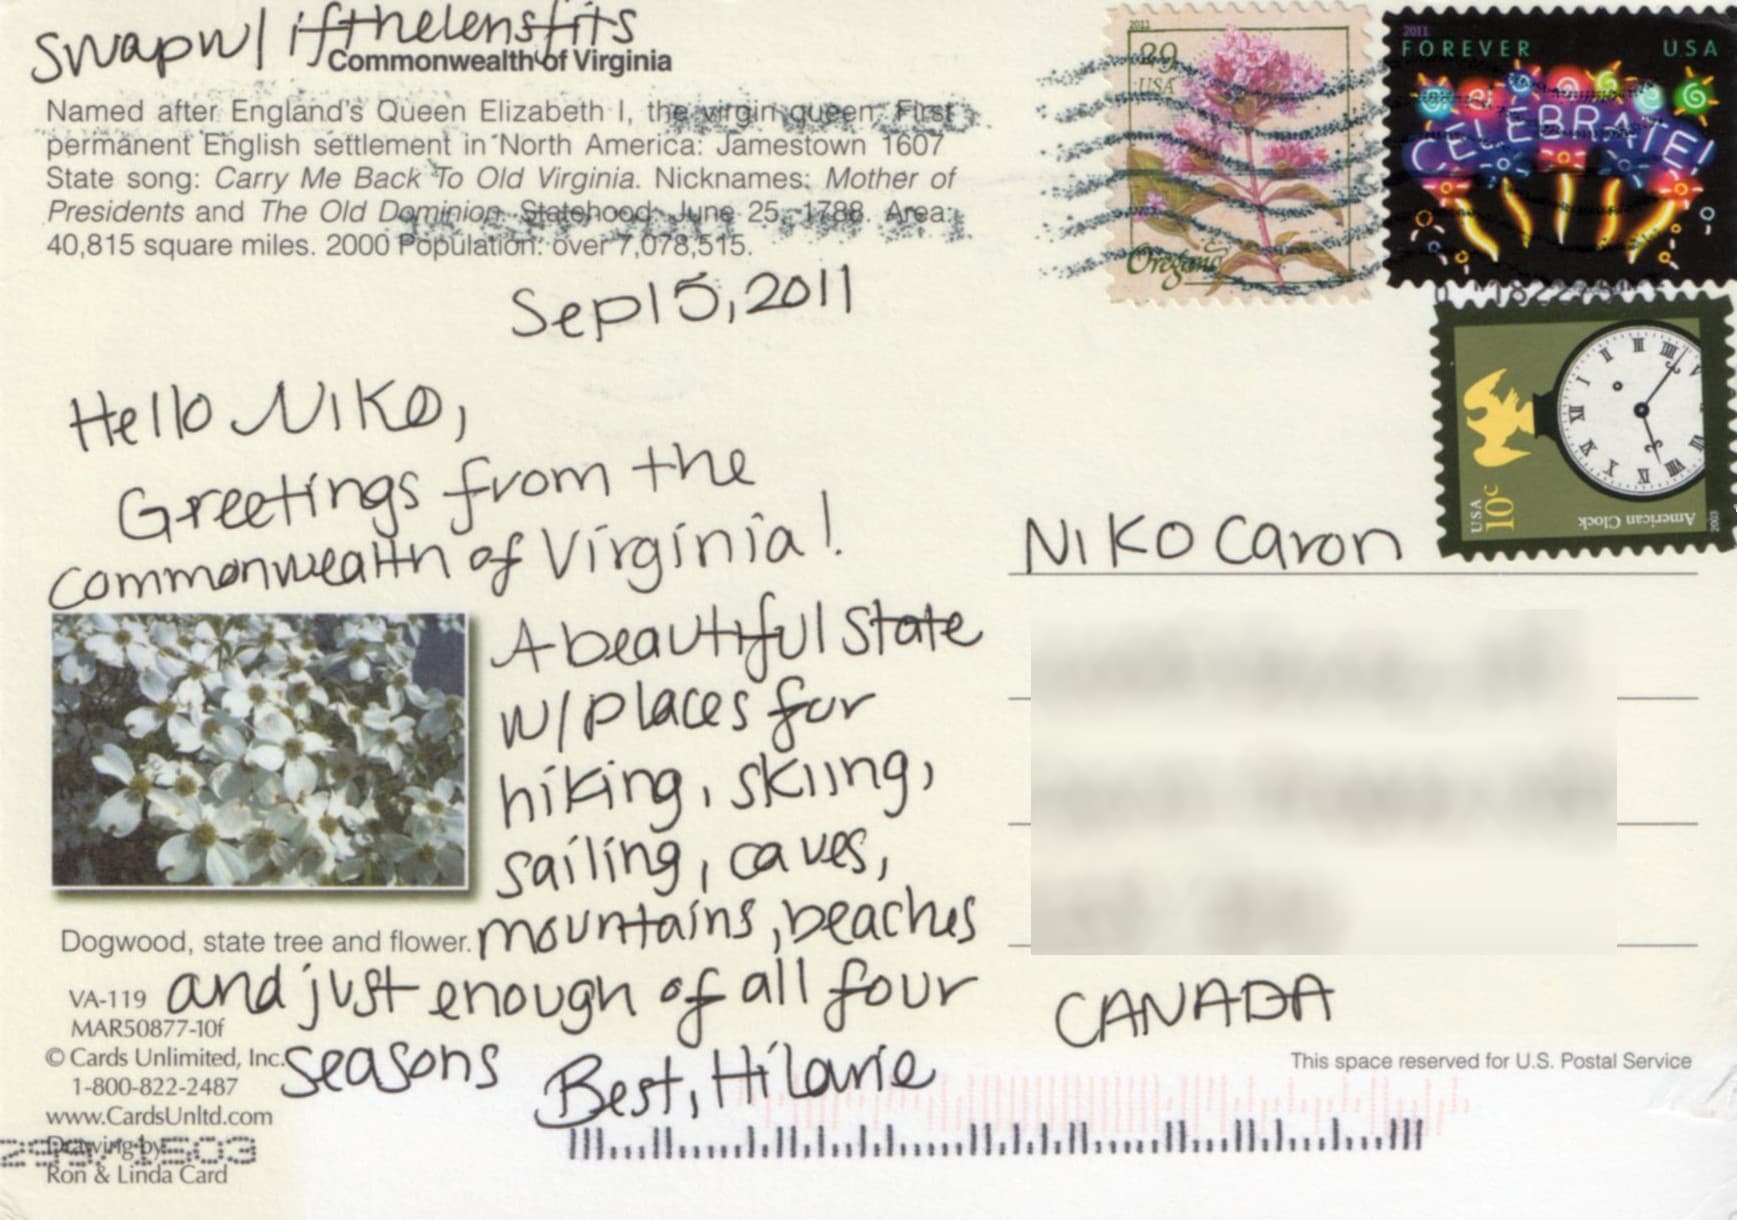 swap w/ ifthelensfits
Commonwealth of Virginia
Named after England's Queen Elizabeth I, the virgin queen. First
permanent English settlement in North America: Jamestown 1607
State song: Carry Me Back To Old Virginia. Nicknames: Mother of
Presidents and The Old Dominion. Statehood: June 25, 1788. Area:
40,815 square miles. 2000 Population: over 7,078,515.
Sep 15, 2011
Hello Niko,
Greetings from the
Commonwealth of Virginia!
A beautiful state
w/ places for
hiking, skiing,
sailing, caves,
mountains, beaches
and just enough of all four
seasons
Best, Hilarie
Dogwood, state tree and flower.
VA-119
MAR50877-10f
© Cards Unlimited, Inc.
1-800-822-2487
www.CardsUnltd.com
Drawing by
Ron & Linda Card
2011
29
USA
Oregano
2011
FOREVER USA
CELEBRATE!
USA
10c
American Clock
2003
I II III IIII V VII VIII IX X XI XII
Niko Caron
CANADA
This space reserved for U.S. Postal Service